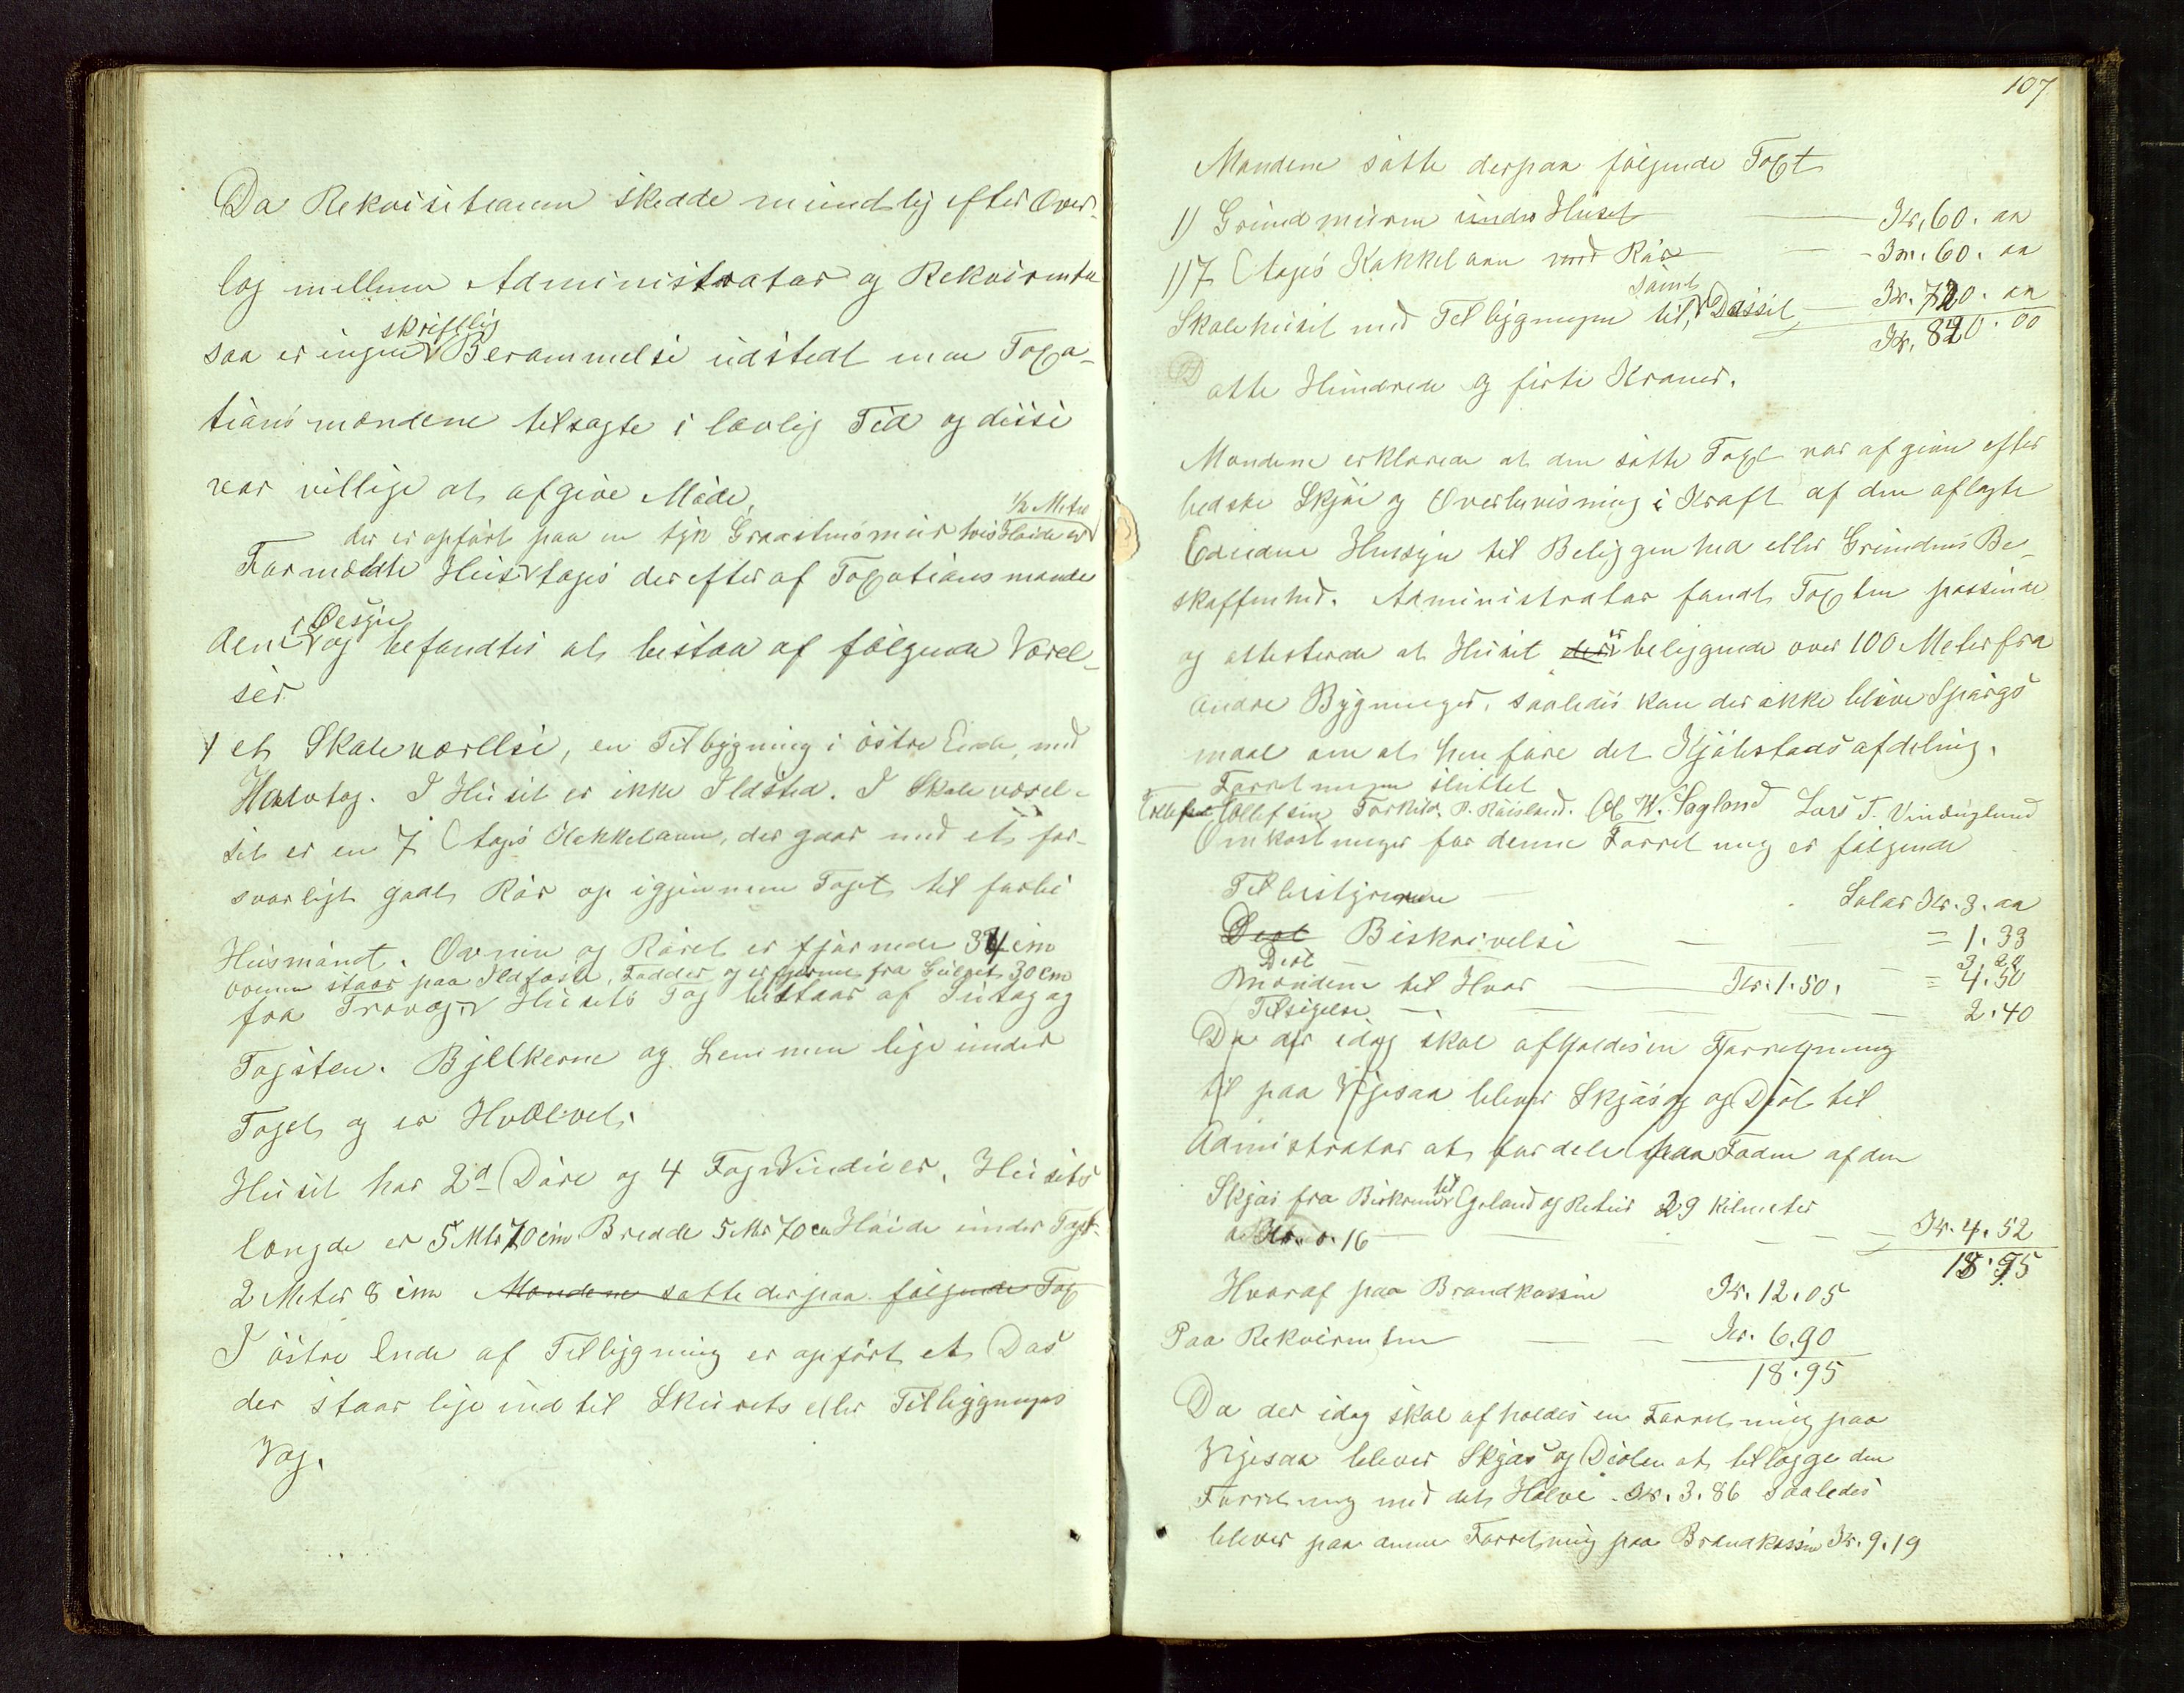 Da Rekvisitionen skedde mundtlig efter Over-
læg mellem Administrator og Rekvirenten
skriftlig
saa er ingen Berammelse udstedt men Taxa-
tionsmændene tilsagte i lovlig Tid og disse
var villige at afgive Møde.
1/2 Meter
der er opført paa en tyk Graastensmur hvis Høide er
Formeldte Huus toges derefter af Taxationsmænde
i Øesyn
dene og befandtes at bestaa af følgende Værel-
ser
1 et Skoleværellse, en Tilbygning i østre Ende med
Halvtag. I Huset er ikke Ildsted. I Skoleværel-
set er en 7 Etages Kakkelovn, der gaar med et for-
svarligt godt Rør op igjennem Taget til forbi
Husmønet. Ovnen og Røret er fjærnede 34 cm
ovnen staar paa Ildfaste Fødder og er fjernet fra Gulvet 30 cm
fra Trævæg. Husets Tag bestaar af Sutag og
Tagsten. Bjelkerne og Lemmen lige under
Taget og er Hvælvet.
Huset har 2d Døre og 4 Fag Vinduer. Husets
længde er 5 Mtr 70 cm Bredde 5 Mtr 70 cm Høide under Taget
2 Meter 8 cm Mændene satte derpaa følgende Tax
I østre Ende af Tilbygning er opført et Das
der staar lige ind til Skurets eller Tilbyggnings
Væg.
107
Mændene satte derpaa følgende Taxt
1) Grundmuren under Huset Kr. 60. 00
1) 7 Etages Kakkelovn med Rør - Kr. 60. 00
samt
Skolehuset med Tilbygningen til, Dasset Kr. 720. 00
Kr. 840. 00
otte Hundrede og firti Kroner.
Mændene erklærede at den satte Taxt var afgiven efter
bedste Skjøn og Overbevisning i Kraft af den aflagte
Ed uden Hensyn til Beliggenhed eller Grundens Be-
skaffenhed. Administrator fandt Taxten passende
og attesterede at Huset der er beliggende over 100 Meter fra
andre Bygninger, saaledes kan der ikke blive Spørgs
maal om at henføre det Kjøbstadsafdeling.
Forretningen sluttet
Tollefsen Torkild P. Røisland. Ol W. Sagland Lars T. Vinduglund
Omkostninger for denne Forretning er følgende
Til bestyreren - Salær Kr. 3. 00
Diet Beskrivelse - = 1. 33
Diet - 3, 20
Mændene til Hvær Kr. 1. 50. = 4. 50
Tilsigelse - 2. 40
Da der idag skal afholdes en Forretning
til paa Njesaa bliver Skjøs og Diæt til
Admistrator at fordele paa Foden af den
Skjøs fra Birkrem til Egeland og Retur 29 Kilmeter
a Kr. 0. 16 - Kr. 4. 52
18. 95
Hvoraf paa Brandkassen Kr. 12. 05
Paa Rekvirenten - Kr. 6. 90
18. 95
Da der idag skal afholdes en Forretning paa
Njesaa bliver Skjøs og Diæten at tillægge den
Forretning med det Halve Kr. 3. 86 saaledes
bliver paa denne Forretning paa Brandkassen Kr. 9. 19